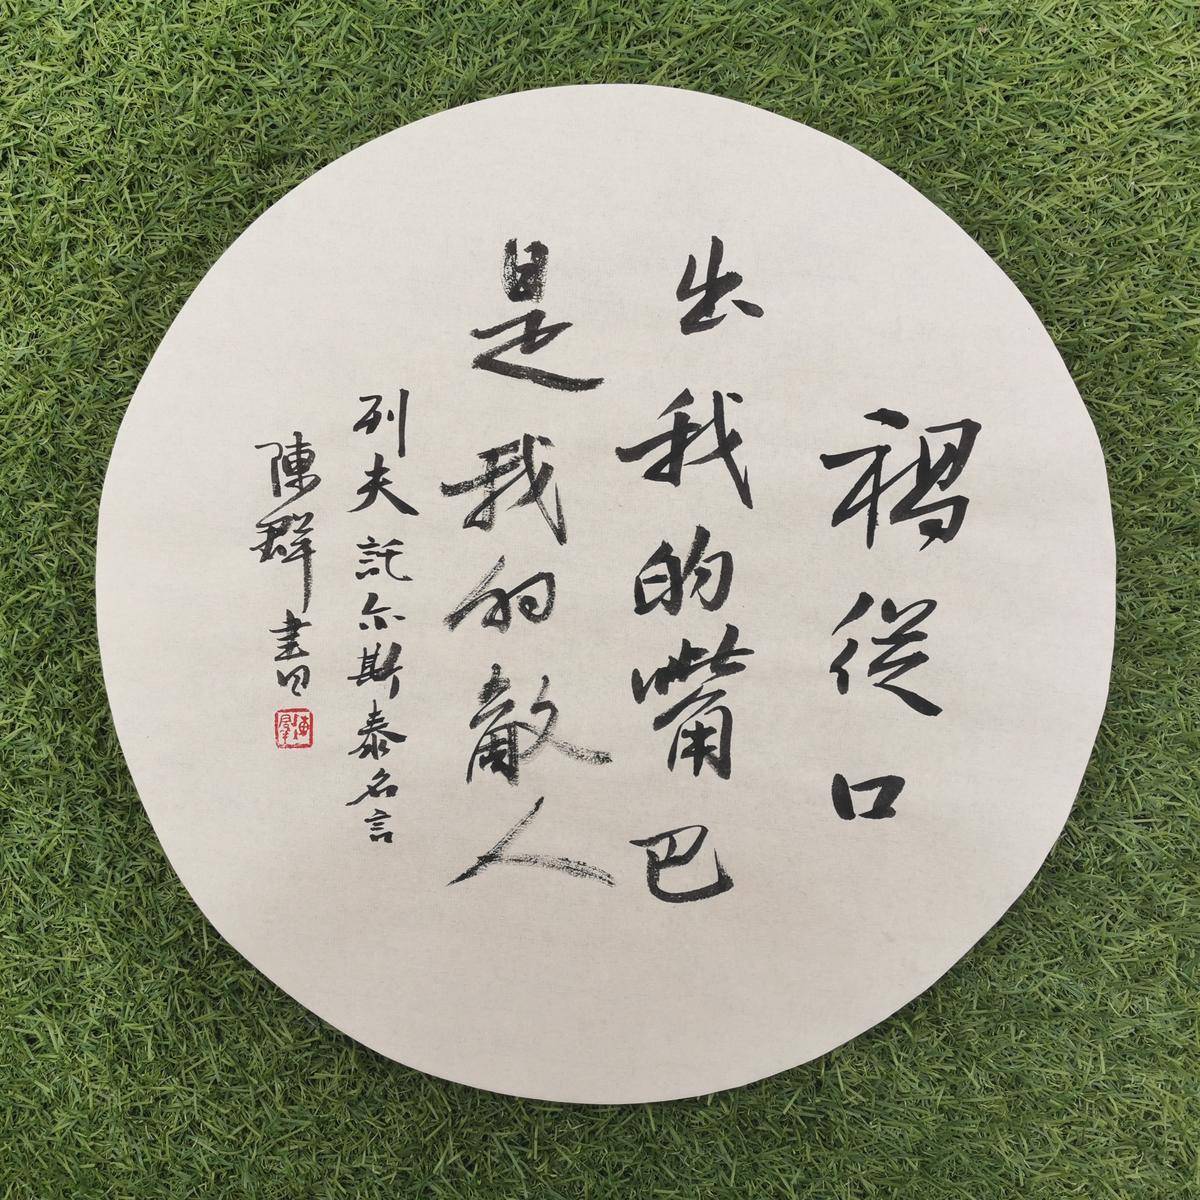 禍從口
出我的嘴巴
是我的敵人
列夫託尔斯泰名言
陳群書
陳群